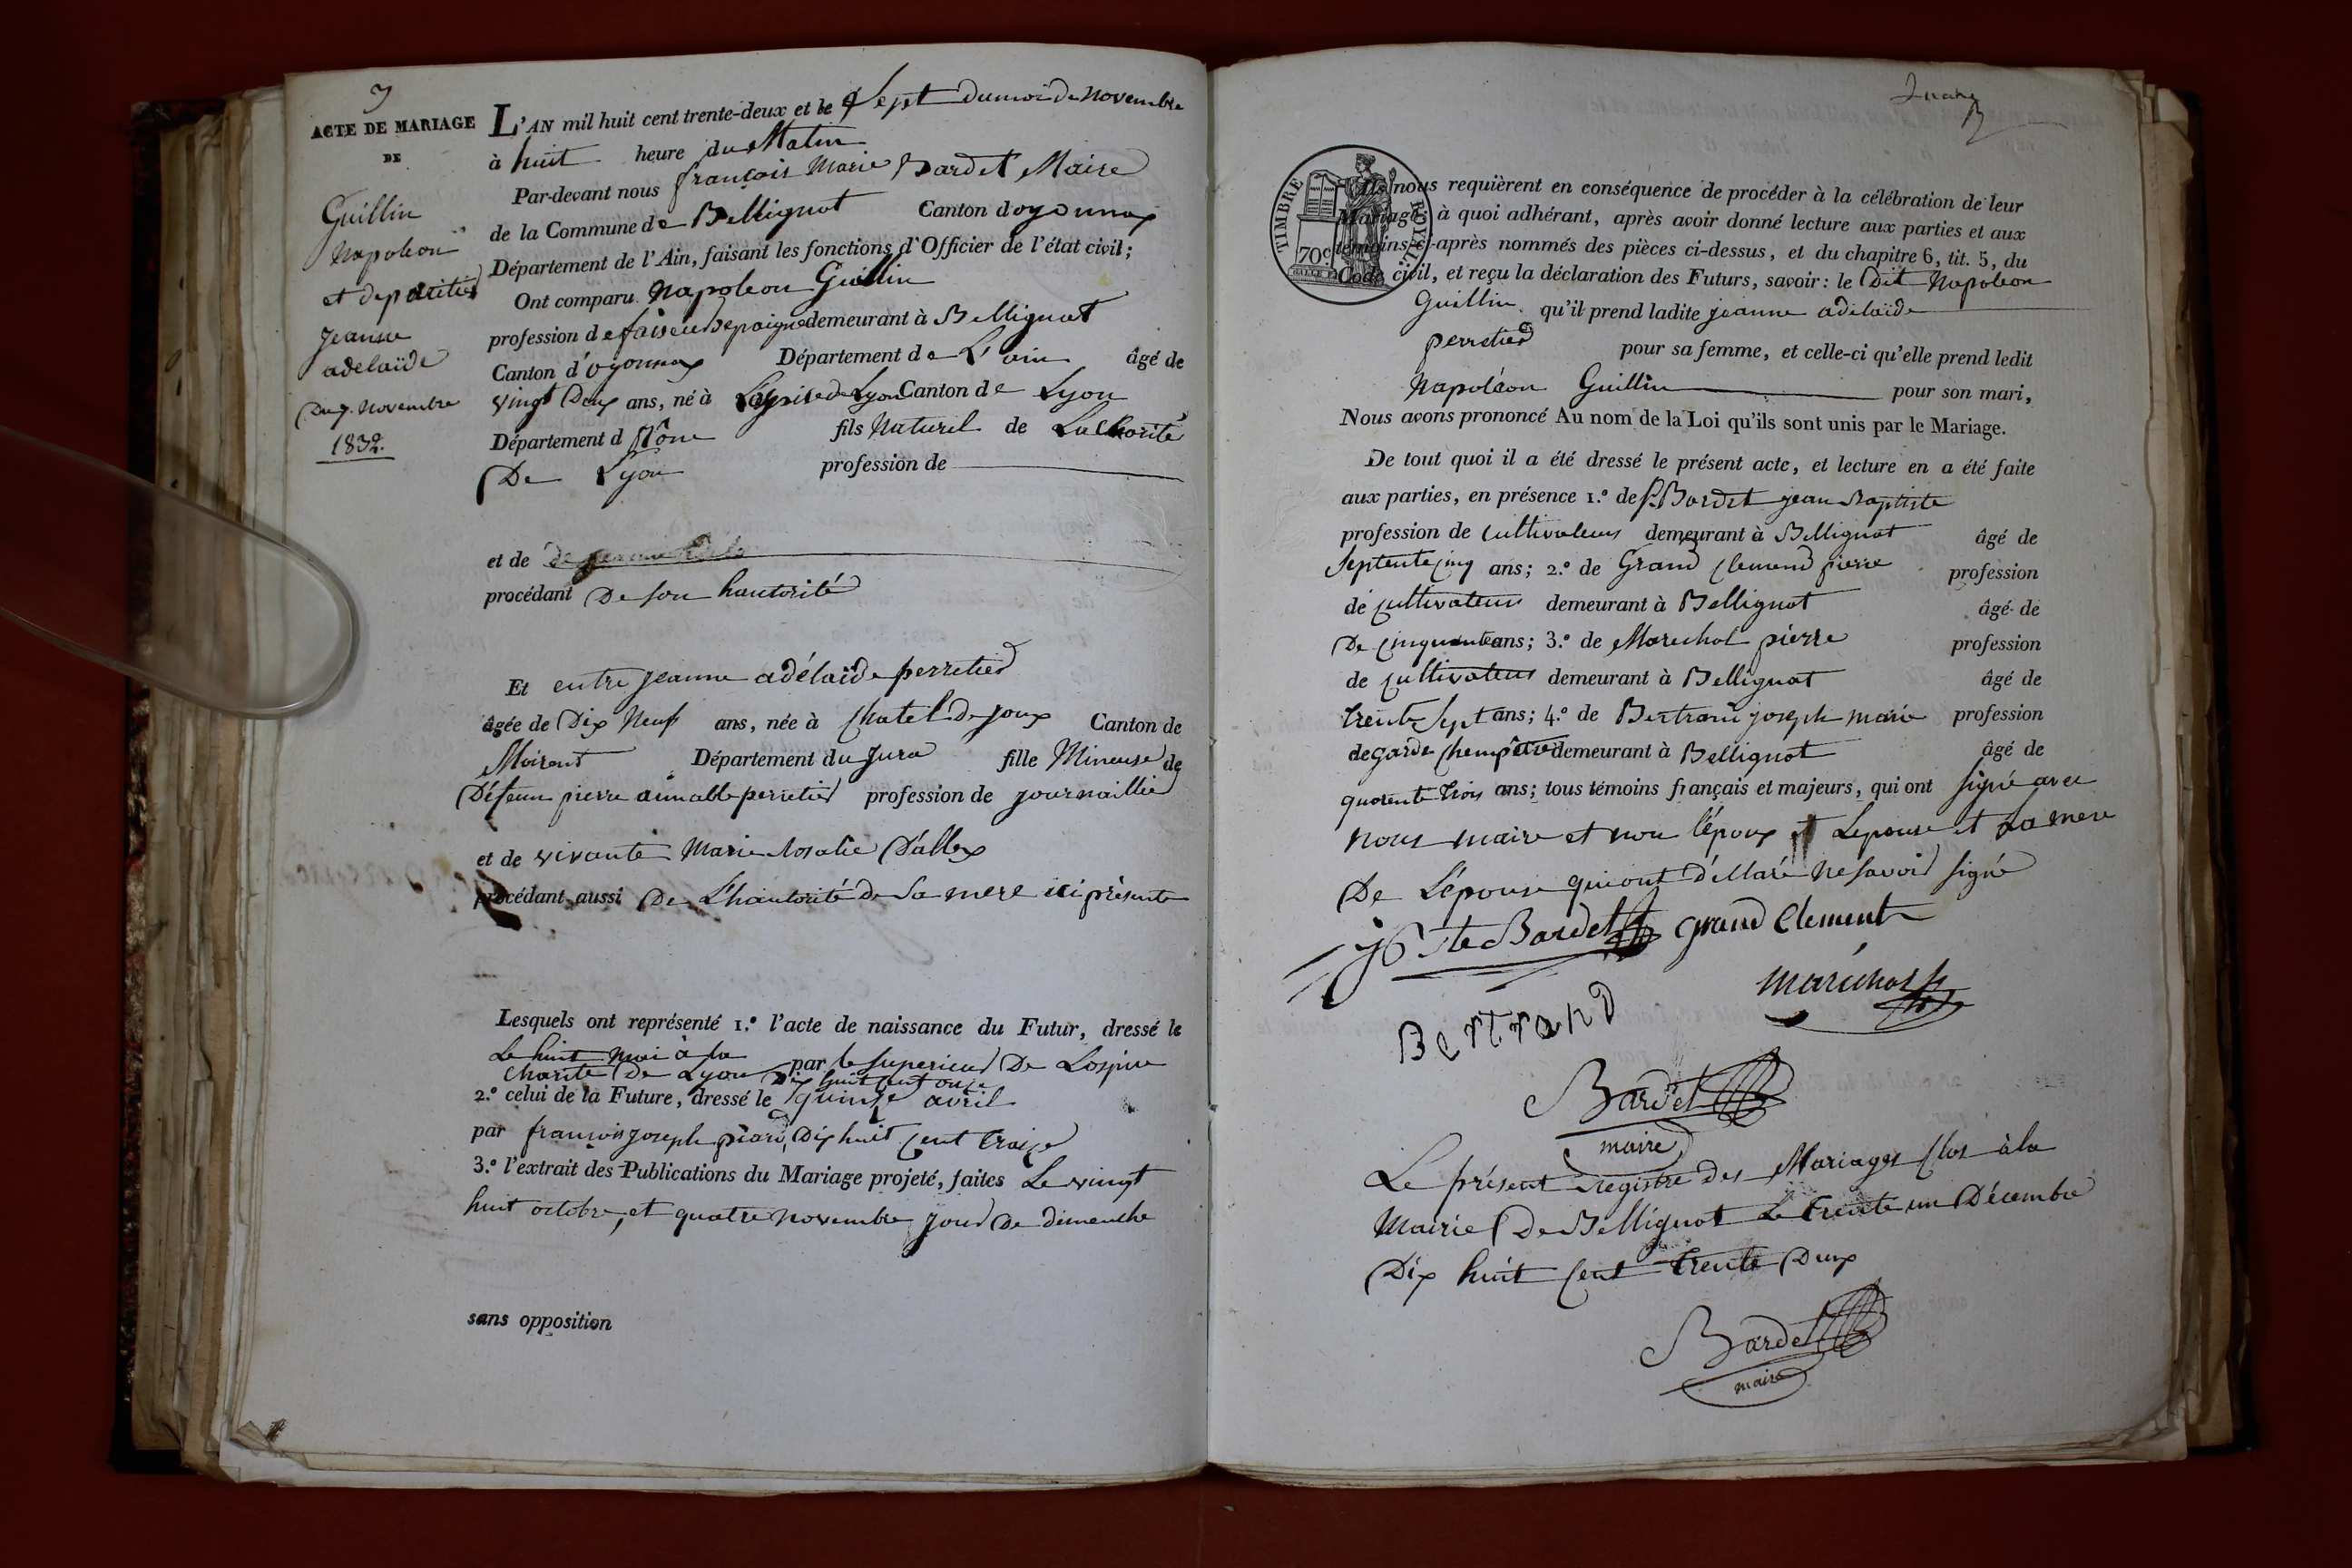 ACTE DE MARIAGE
DE
Guillin
Napoléon
et de
Jeanne
adelaïde
Du 7. Novembre
1832.
L'AN mil huit cent trente-deux et le Sept du moi de Novembre
à huit heure du Matin
Par-devant nous françois Marie Bardet Maire
de la Commune de Bellignat Canton doyonnax
Département de l'Ain, faisant les fonctions d'Officier de l'état civil;
Ont comparu Napoleon Guillin
profession de faiseur de paigne demeurant à Bellignat
Canton d'oyonnax Département de L'ain âgé de
vingt Deux ans, né à de Lyon Canton de Lyon
Département d Rône fils Naturel de La Charité
De Lyon profession de
et de
procédant De son hautorité
Et entre Jeanne adélaïde perretier
âgée de Dix Neuf ans, née à Chatel De Joux Canton de
Moirent Département du Jura fille Mineuse de
Défeun pierre aimable perretier profession de journaillier
et de vivante Marie Rosalie Dallox
procédant aussi De L'hautorité de Sa mere ici présente
Lesquels ont représenté 1.º l'acte de naissance du Futur, dressé le
Le huit Mai à la par le Superieur De Lospice
Charité De Lyon Dix huit cent onze
2.º celui de la Future, dressé le quinze avril
par françois Joseph piard, Dix huit Cent traize
3.º l'extrait des Publications du Mariage projeté, faites Le vingt
huit octobre, et quatre novembre jour De dimenche
sans opposition
TIMBRE ROYAL
70c
Ils nous requièrent en conséquence de procéder à la célébration de leur
Mariage; à quoi adhérant, après avoir donné lecture aux parties et aux
témoins ci-après nommés des pièces ci-dessus, et du chapitre 6, tit. 5, du
Code civil, et reçu la déclaration des Futurs, savoir: le Dit Napoleon
Guillin qu'il prend ladite jeanne adelaïde
perretier pour sa femme, et celle-ci qu'elle prend ledit
Napoléon Guillin pour son mari,
Nous avons prononcé Au nom de la Loi qu'ils sont unis par le Mariage.
De tout quoi il a été dressé le présent acte, et lecture en a été faite
aux parties, en présence 1.º de Bardet jean Baptiste
profession de Cultivateur demeurant à Bellignat âgé de
Septente Cinq ans; 2.º de Grand Clemend pierre profession
de Cultivateur demeurant à Bellignat âgé de
De Cinquante ans; 3.º de Marechal pierre profession
de Cultivateur demeurant à Bellignat âgé de
trente Sept ans; 4.º de Bertrand joseph marie profession
de garde Chempêtre demeurant à Bellignat âgé de
quarente trois ans; tous témoins français et majeurs, qui ont signé avec
nous maire et non l'époux et Lepouse et La mere
De L'épouse qui ont déllaré ne savoir signé
Bte Bardet grand Clement
Bertrand
maréchal
Bardet
maire
Le présent registre des Mariages Clos à la
Mairie De Bellignat Le trente un Décembre
Dix huit Cent trente Deux
Bardet
maire